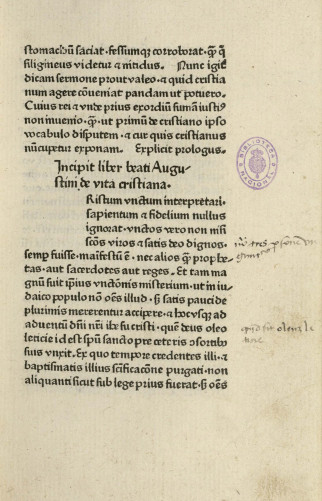 stomachũ saciat. fessumq; corroborat. q̃ q̃
siligineus videtur & nitidus. Nunc igit̃
dicam sermone prout valeo. & quid cristia
num agere cõueniat pandam ut potuero.
Cuius rei & vnde prius exordiũ sumã iusti⁹
non inuenio. q̃. ut primũ de cristiano ipso
vocabulo disputem. & cur quis cristianus
nũcupetur exponam. Explicit prologus.
Incipit liber beati Augu
stini de vita cristiana.
Ristum vnctum interpretari.
sapientum & fidelium nullus
ignorat. vnctos vero non nisi
scõs viros & satis deo dignos.
semp̃ fuisse. maifestũ ẽ. nec alios q̃ prophe
tas. aut sacerdotes aut reges. Et tam ma
gnũ fuit ip̃ius vnctõnis misterium. ut in iu
daico populo nõ oẽs illud. s̃ satis pauci de
plurimis mererentur accipere. & hocusq; ad
aduentũ dñi nr̃i ih̃u cristi. quẽ deus oleo
leticie id est sp̃u sancto pre ceteris ɔsortibꝰ
suis vnxit. Ex quo tempore credentes illi. &
baptismatis illius sc̃ificacõne purgati. non
aliquanti sicut sub lege prius fuerat. s̃ oẽs
BIBLIOTECA NACIONAL
quid sit oleum le